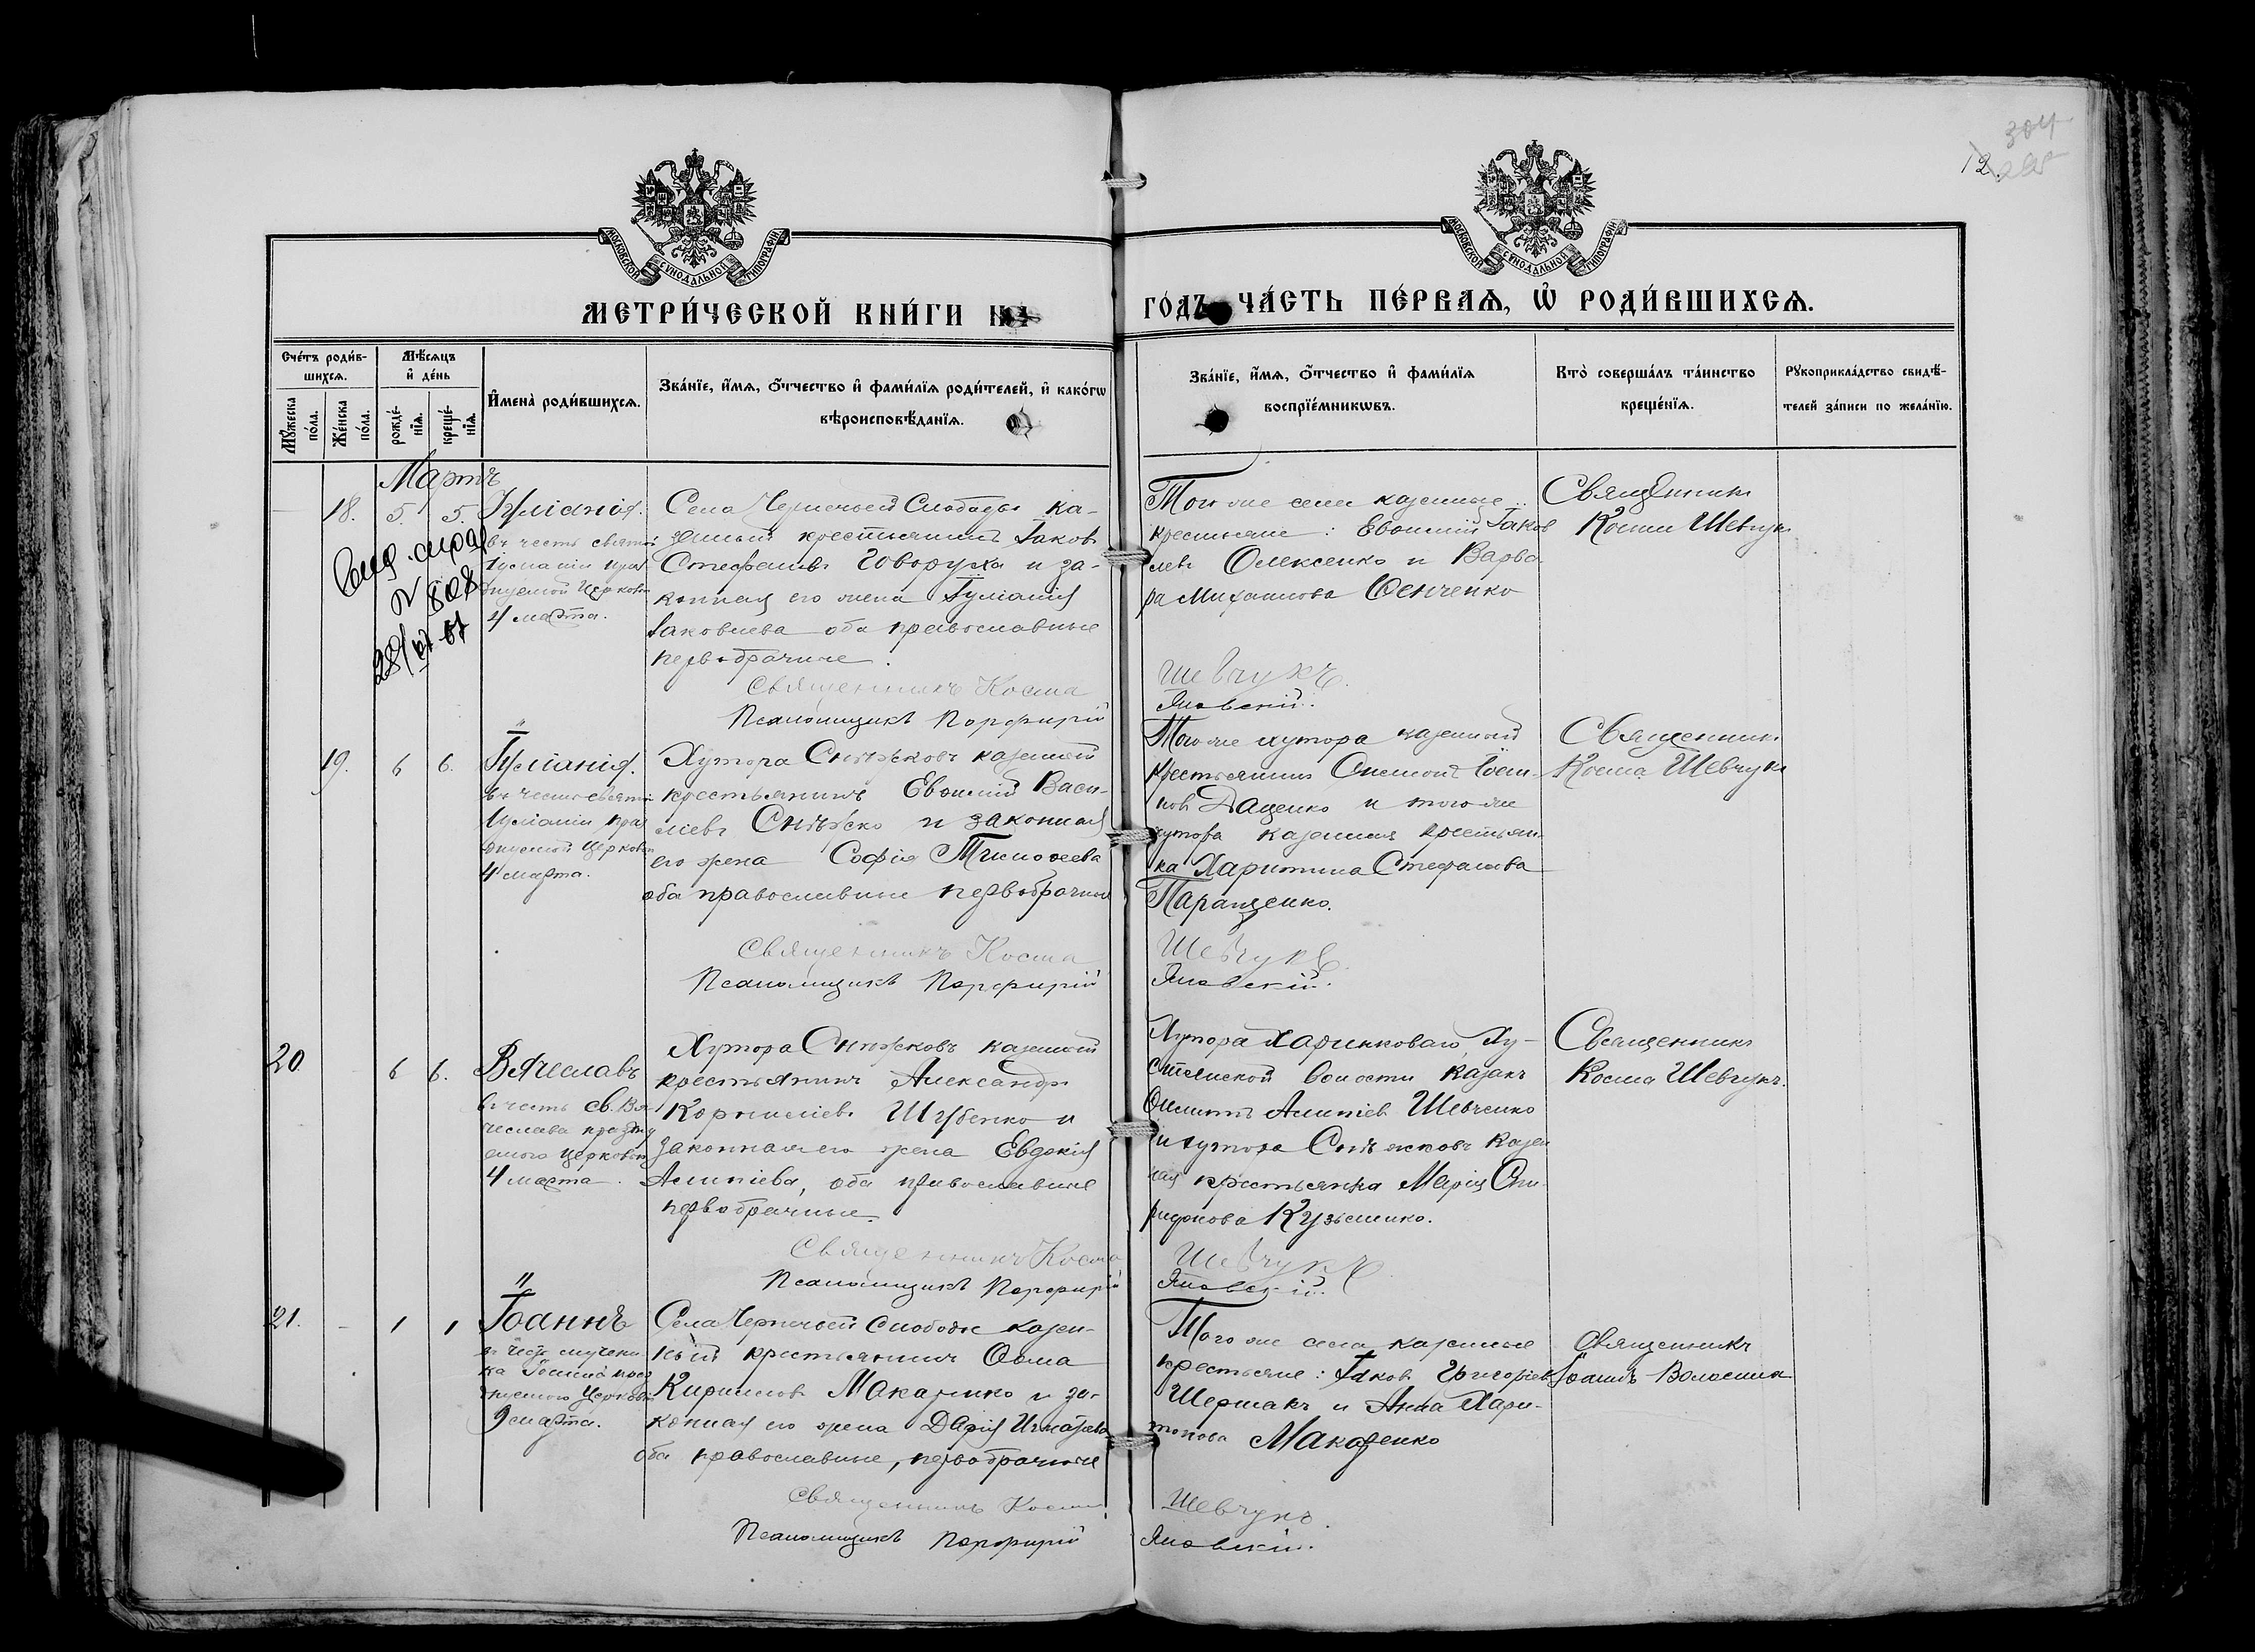 304
12.
МОСКОВСКОЙ СУНОДАЛЬНОЙ ТИПОГРАФІИ
МОСКОВСКОЙ СУНОДАЛЬНОЙ ТИПОГРАФІИ
МЕТРИ́ЧЕСКОЙ КНИ́ГИ НА
ГО́ДЪ ЧА́СТЬ ПЕ́РВАѦ, Ѿ РОДИ́ВШИХСѦ.
Сче́тъ роди́в-
шихсѧ.
Мѣ́сѧцъ
и҆ де́нь
Мꙋ́жеска
по́ла.
Же́нска
по́ла.
рожде́-
нїѧ.
креще́-
нїѧ.
И҆мена̀ роди́вшихсѧ.
Зва́нїе, и҆́мѧ, ѻ҆́тчество и҆ фами́лїѧ роди́телей, и҆ како́гѡ
вѣроисповѣ́данїѧ.
Зва́нїе, и҆́мѧ, ѻ҆́тчество и҆ фами́лїѧ
воспрїе́мникѡвъ.
Кто̀ соверша́лъ та́инство
креще́нїѧ.
Рꙋкоприкла́дство свидѣ́-
телей за́писи по жела́нїю.
Мартъ
18. 5. 5.
Іуліанія.
въ честь святой
Іуліаніи праз
днуемой Церковію
4 марта.
№ 808
Села Чернечьей Слободы ка-
зенный крестьянинъ Іаковъ
Стефановъ Говоруха и за-
конная его жена Іуліанія
Іаковлева оба православные
первобрачные.
Священникъ Косма
Псаломщикъ Порфирій
Того же села казенные
крестьяне: Евѳимій Іаков
левъ Олексенко и Варва
ра Михаилова Сенченко
Шевчукъ.
Яновскій.
Священникъ
Косма Шевчукъ
19. 6 6.
Іуліанія.
въ честь святой
Іуліаніи праз
днуемой Церковію
4 марта.
Хутора Снѣжковъ казенный
крестьянинъ Евѳимій Васи-
ліевъ Снѣжко и законная
его жена Софія Тимоѳеева
оба православные первобрачные
Священникъ Косма
Псаломщикъ Порфирій
Того же хутора казенный
крестьянинъ Симеонъ
новъ Даценко и того же
хутора казенная крестьян-
ка Харитина Стефанова
Паращенко.
Шевчукъ.
Яновскій.
Священникъ
Косма Шевчукъ
20 6 6.
Вячеславъ
въ честь св. Вя-
чеслава праздну
емаго Церковію
4 марта.
Хутора Снѣжковъ казенный
крестьянинъ Александръ
Корниліевъ Шубенко и
законная его жена Евдокія
Алипіева, оба православные
первобрачные.
Священникъ Косма
Псаломщикъ Порфирій
Хутора Харинковаго, Ху-
стянской волости казакъ
Алипіевъ Шевченко
и хутора Снѣжковъ казен
ная крестьянка Марія Спи-
ридонова Кузьменко.
Шевчукъ
Яновскій.
Священникъ
Косма Шевчукъ.
21. - 1 1
Іоаннъ
въ честь мучени
ка Іоанна праз
днуемаго Церковію
9 марта.
Села Чернечьей Слободы казен-
ный крестьянинъ Ѳома
Кирилловъ Макаренко и за-
конная его жена Дарія Игнатіева
оба православные, первобрачные
Священникъ Косма
Псаломщикъ Порфирій
Того же села казенные
крестьяне: Іаковъ Григоріевъ
Шермакъ и Анна Хари-
тонова Макаренко
Шевчукъ.
Яновскій.
Священникъ
Іоаннъ Волошинъ